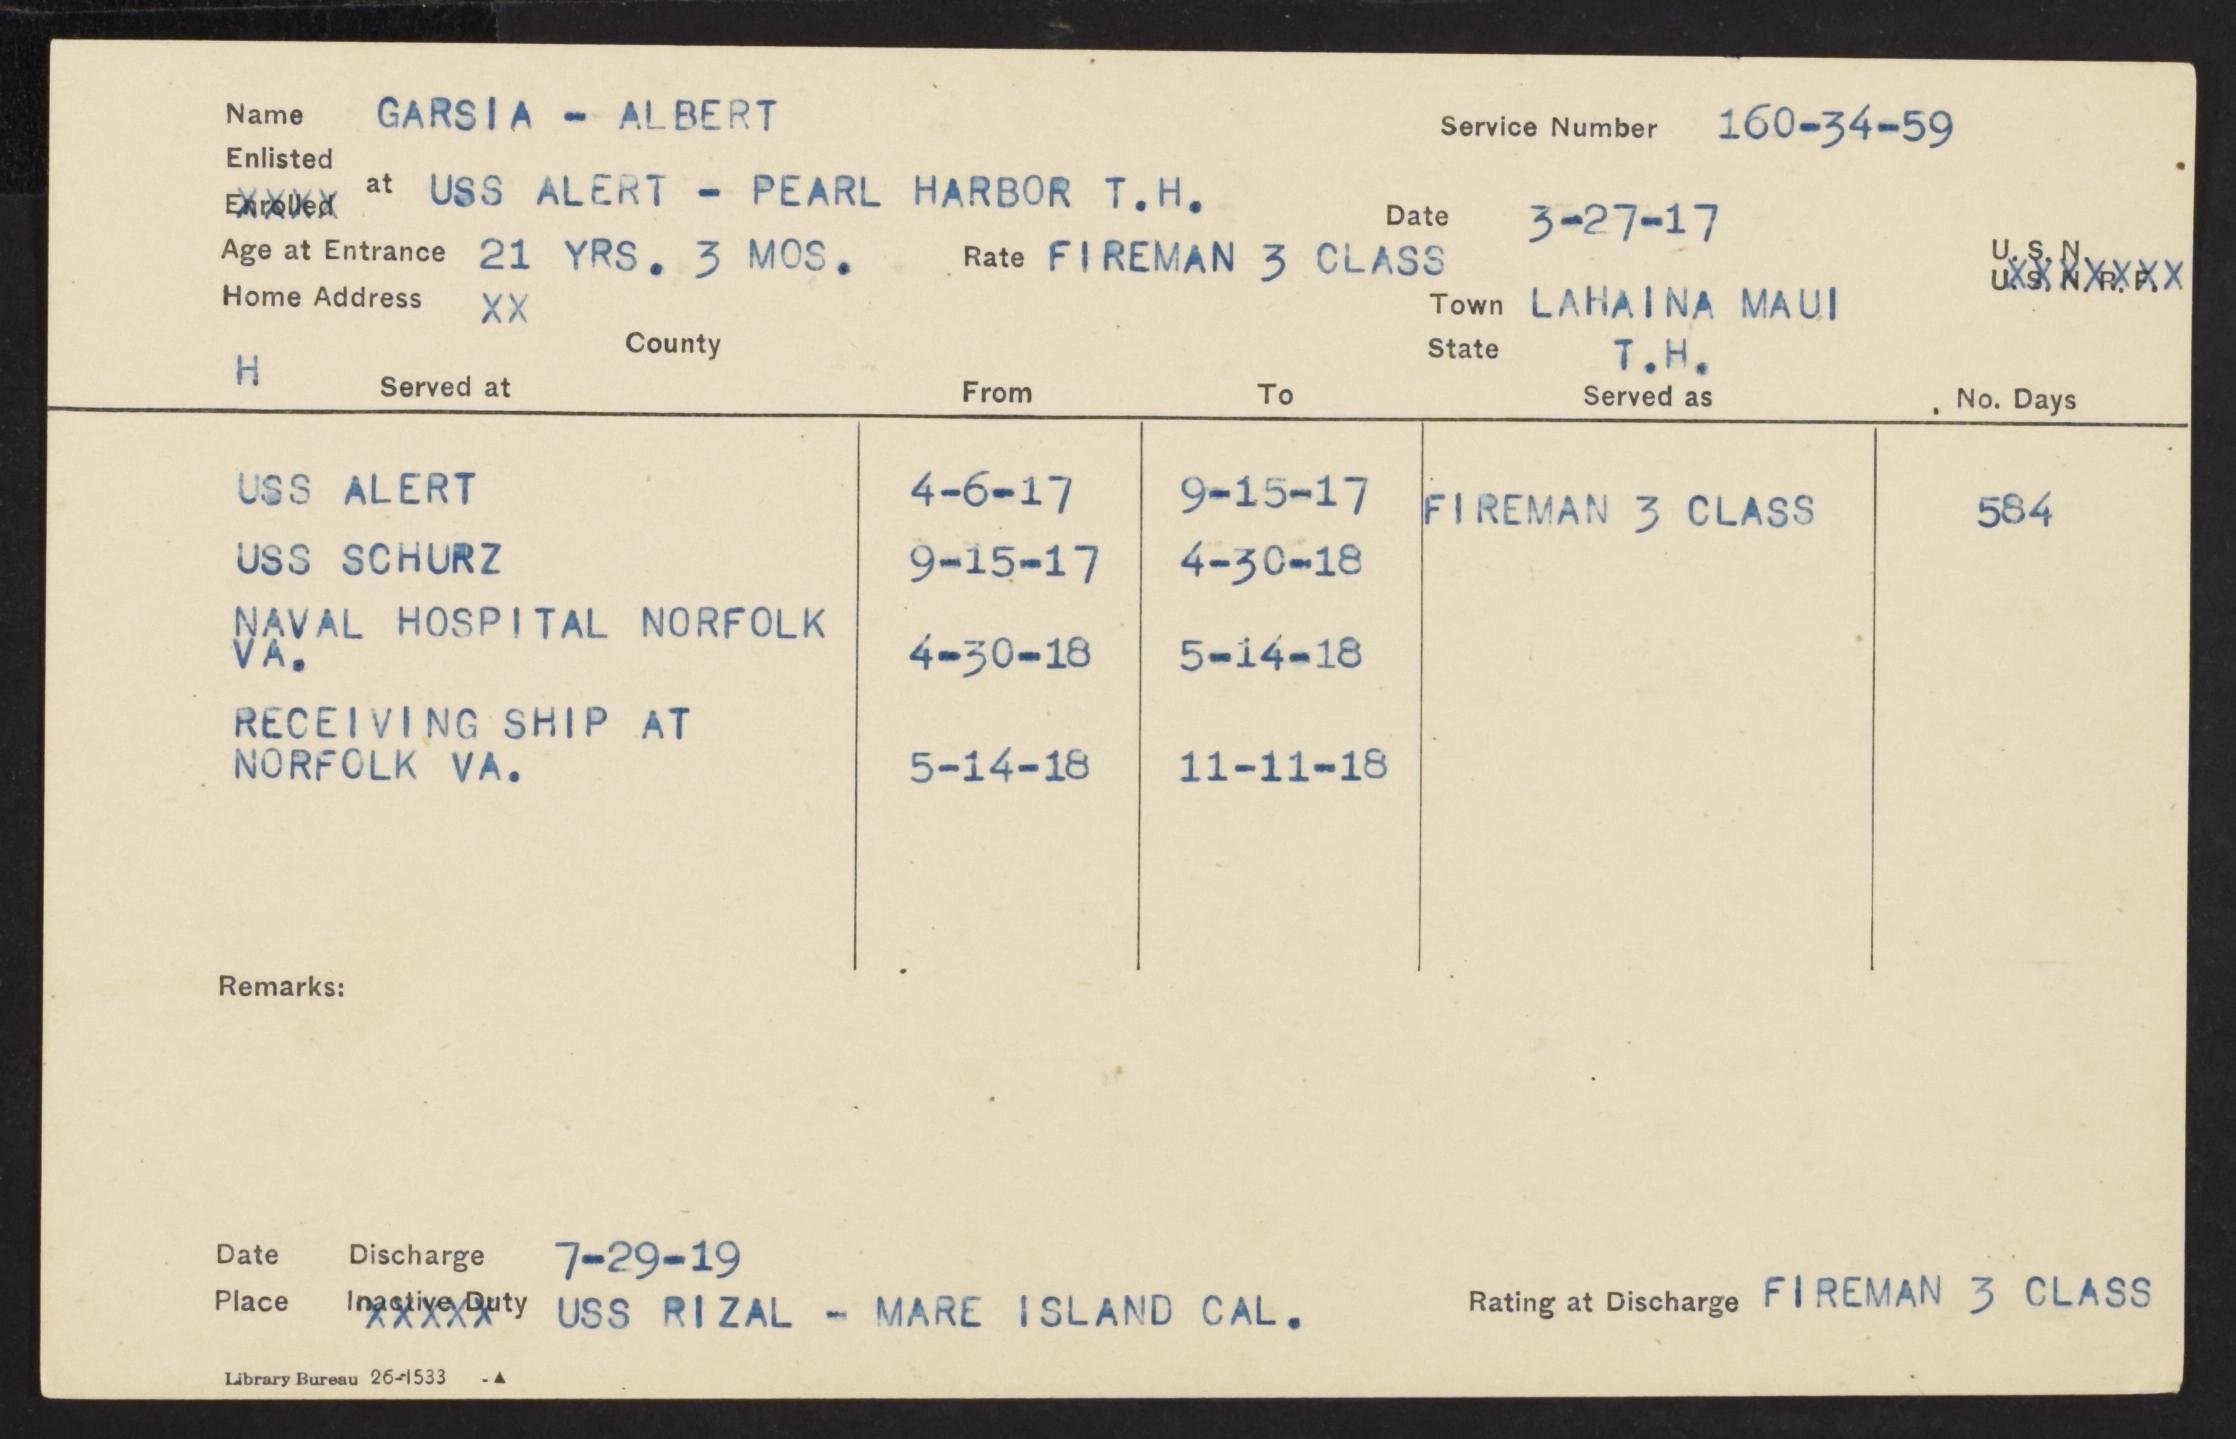 Name GARSIA - ALBERT Service Number 160-34-59
Enlisted
Enrolled at USS ALERT - PEARL HARBOR T.H. Date 3-27-17
Age at Entrance 21 YRS. 3 MOS. Rate FIREMAN 3 CLASS U. S. N.
U. S. N. R. F.
Home Address XX Town LAHAINA MAUI
County State T.H.
H Served at From To Served as No. Days
USS ALERT 4-6-17 9-15-17 FIREMAN 3 CLASS 584
USS SCHURZ 9-15-17 4-30-18
NAVAL HOSPITAL NORFOLK
VA. 4-30-18 5-14-18
RECEIVING SHIP AT
NORFOLK VA. 5-14-18 11-11-18
Remarks:
Date Discharge 7-29-19
Place Inactive Duty USS RIZAL - MARE ISLAND CAL. Rating at Discharge FIREMAN 3 CLASS
Library Bureau 26-1533 -▲